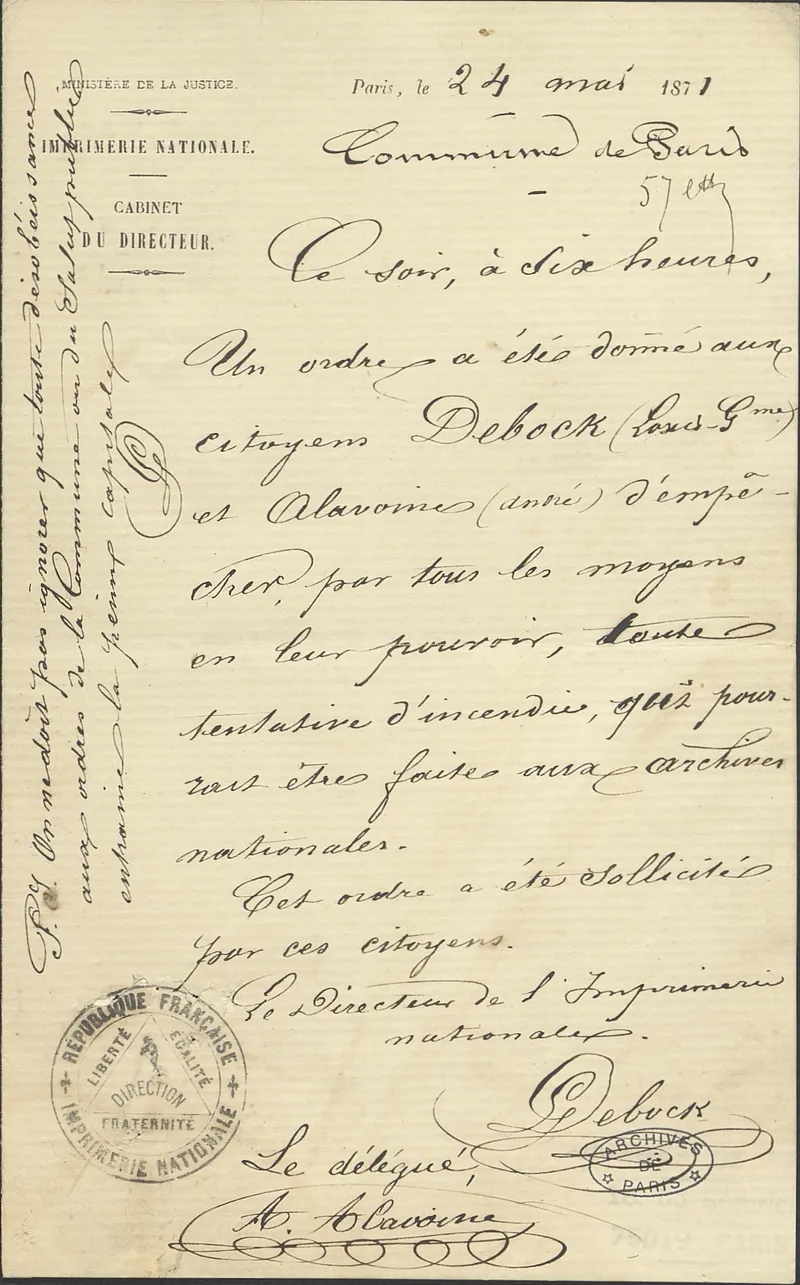 MINISTÈRE DE LA JUSTICE.
IMPRIMERIE NATIONALE.
CABINET
DU DIRECTEUR.
Paris, le 24 mai 1871
Commune de Paris
Ce soir, à six heures,
Un ordre a été donné aux
citoyens Debock (Louis-Gme)
et Alavoine (andré) d'empê-
cher, par tous les moyens
en leur pouvoir, toute
tentative d'incendie, qui pour-
rait être faite aux archives
nationales.
Cet ordre a été sollicité
par ces citoyens.
Le Directeur de l'Imprimerie
nationale.
Debock
Le délégué,
A. Alavoine
P.S. On ne doit pas ignorer que toute désobéissance
aux ordres de la Commune ou du Salut public
entraine la peine capitale
RÉPUBLIQUE FRANÇAISE
LIBERTÉ
EGALITÉ
DIRECTION
FRATERNITÉ
IMPRIMERIE NATIONALE
ARCHIVES
DE
PARIS